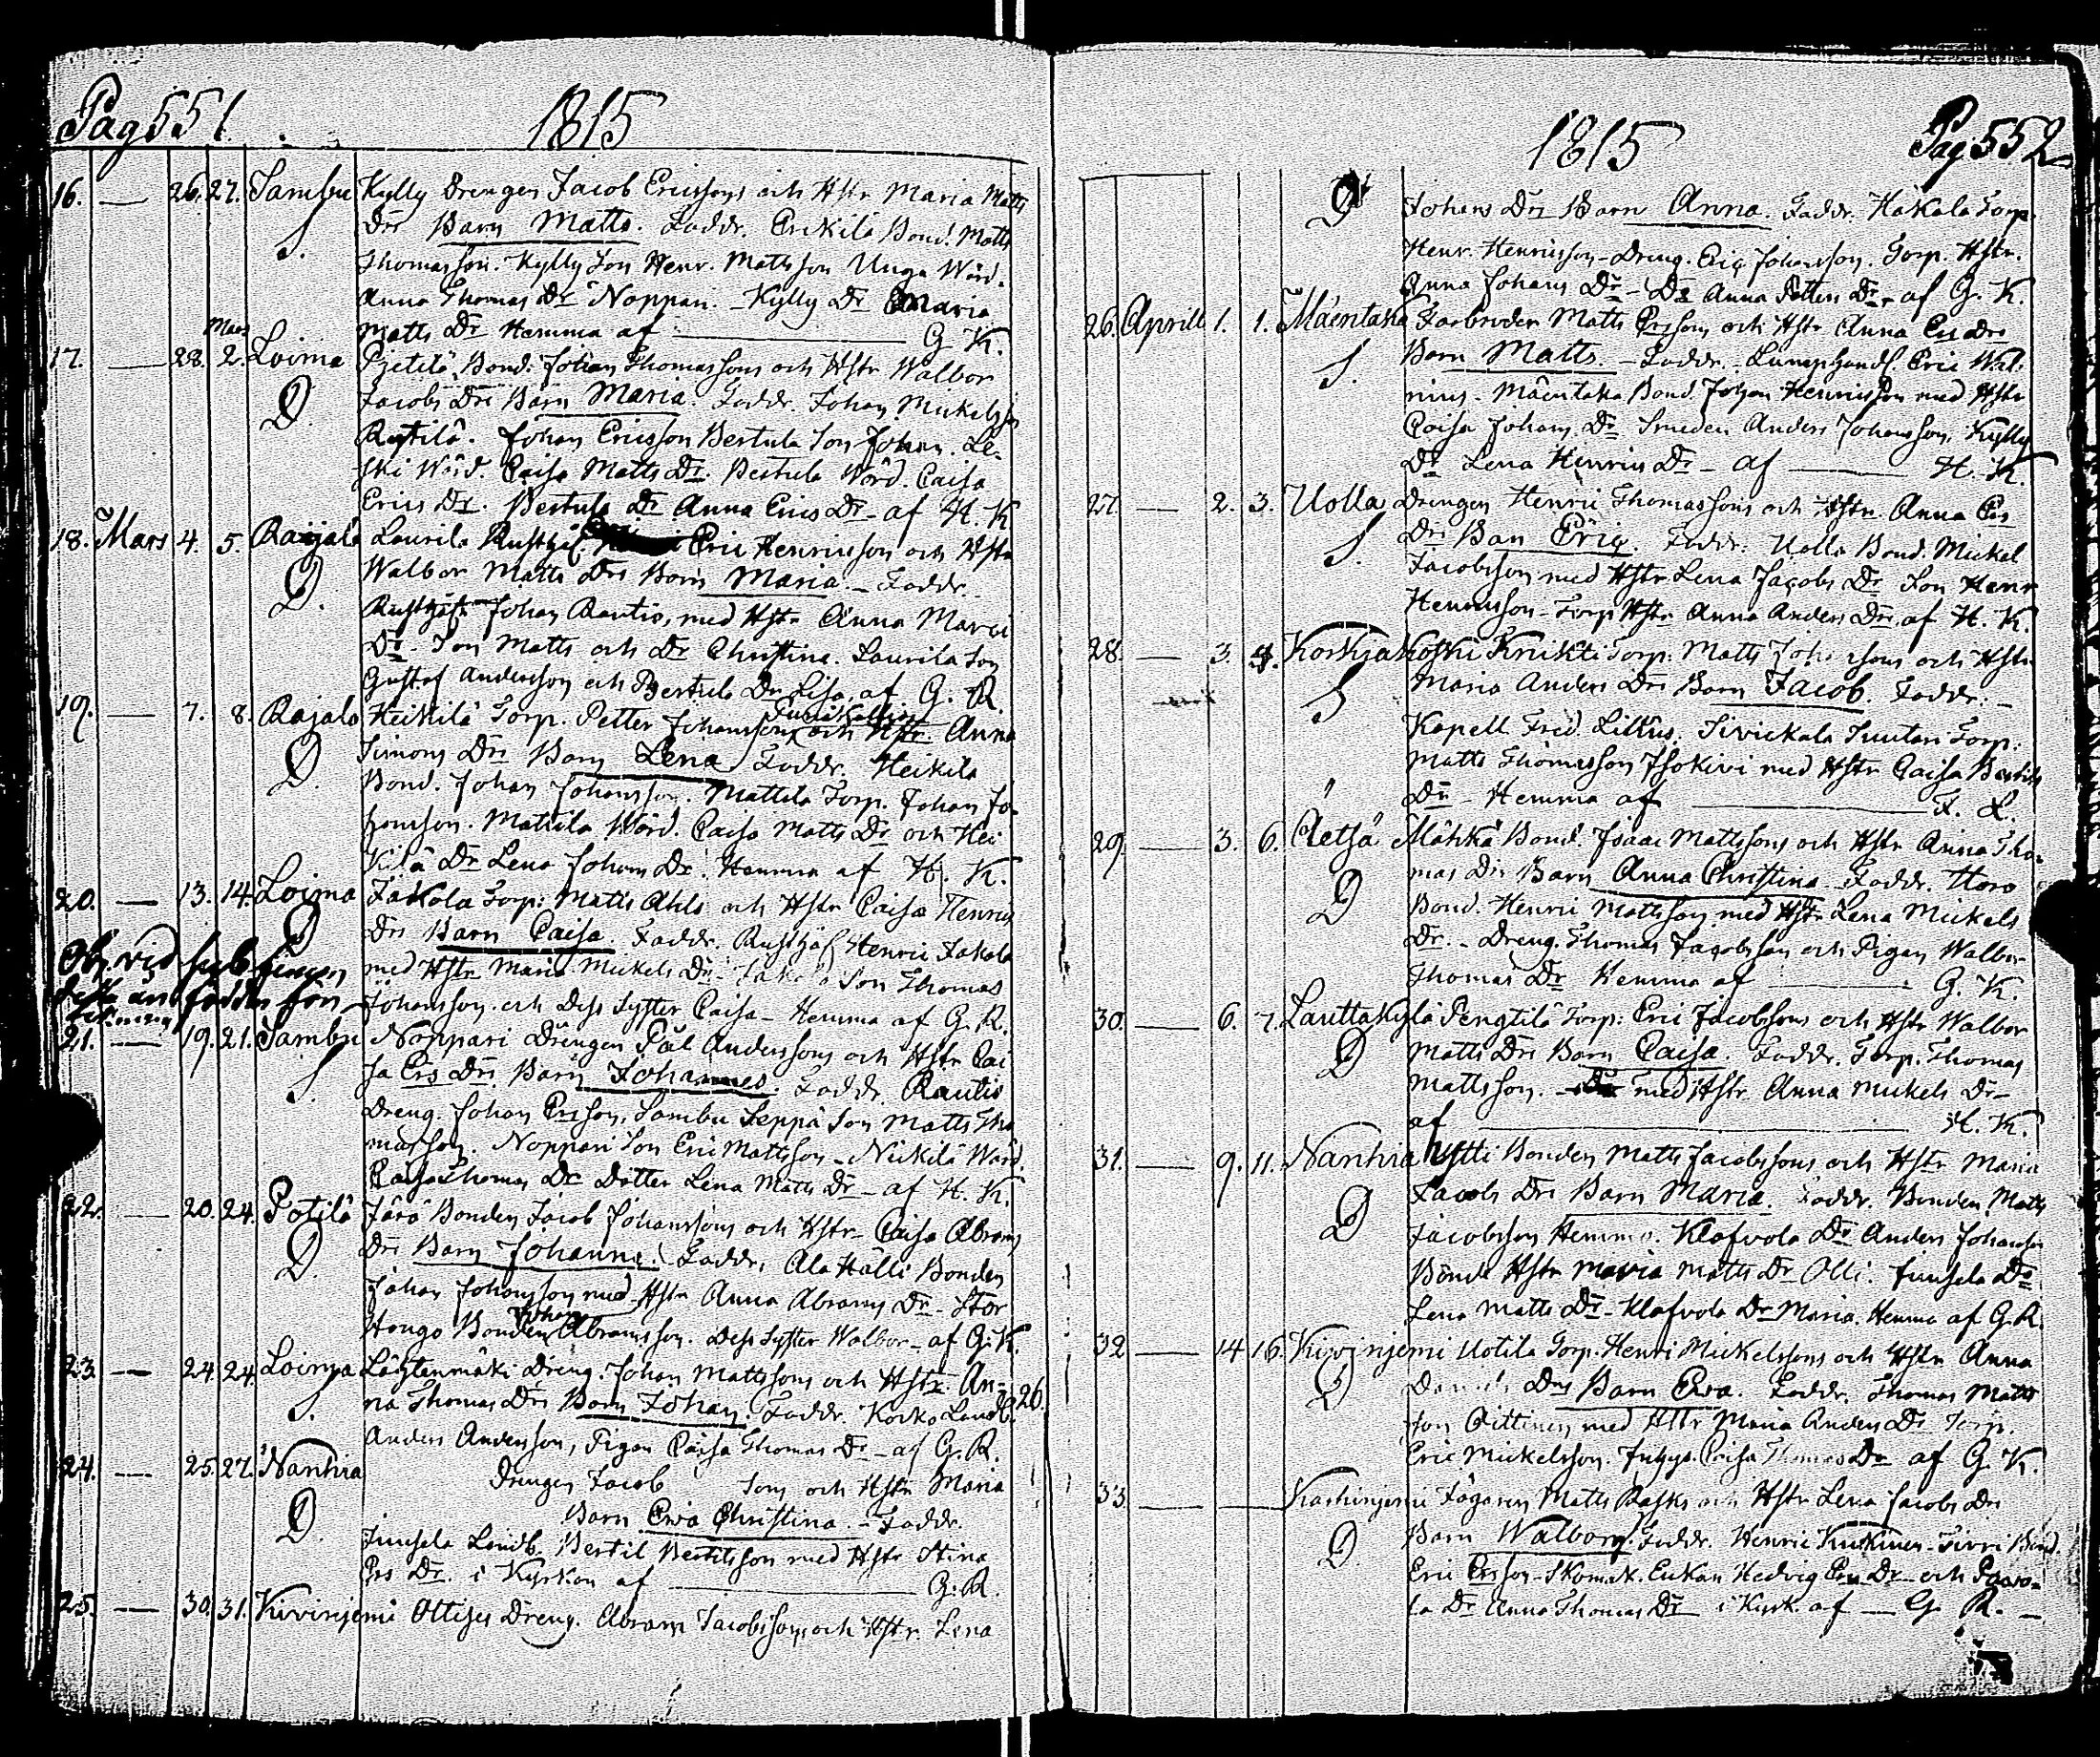 Pag 551 1815
16. — 26. 27. Sambu Kylly Drengen Jacob Ericssons och Hstr Maria Matts
S. Drs Barn Matts. Faddr. Erikilä Bond. Matts
Thomasson. Kylly Son Henr. Mattsson Unga Wärd.
Anna Thomas Dr Noppari. – Kylly Dr Maria
Matts Dr Hemma af — G. K.
Mars
17. — 28. 2. Loima Pietilä Bond: Johan Thomassons och Hstr Walbor
D. Jacobs Drs Barn Maria. Faddr. Johan Mickelsson
Rastilä. Johan Ericsson Bertula Son Johan. Le-
ski Wärd. Caisa Matts Dr. Bertula Wärd. Caisa
Erics Dr. Bertula Dr Anna Erics Dr – af H. K.
18. Mars 4. 5. Raijala Laurila Rusthåll. Eric Henricsson och Hstr
D. Walbor Matts Drs Barn Maria. – Faddr.
Rusthåll. Johan Rautio, med Hstr Anna Marci
Dr. Son Matts och Dr Christina. Laurila Son
Gustaf Andersson och Bertula Dr Lisa, af G. R.
19. — 7. 8. Rajala Keikilä Torp. Petter Johanssons och Hstr. Anna
D. Simons Drs Barn Lena Faddr. Heikilä
Bond. Johan Johansson. Mattila Torp. Johan Jo-
hansson. Mattila Wärd. Caisa Matts Dr och Hei
kilä Dr Lena Johans Dr. Hemma af H. K.
20. — 13. 14. Loima Jakola Torp: Matts Ahls och Hstr Caisa Henrics
D Drs Barn Caisa Faddr. Rusthåll Henric Jakola
med Hstr Maria Mickels Dr – Jakola Son Thomas
Johansson och Dess Syster Caisa – Hemma af G. R.
21. — 19. 21. Sambu Noppari Drengen Pål Anderssons och Hstr Cai
S. sa Ers Drs Barn Johannes. Faddr. Rautio
Dreng. Johan Ersson, Sambu Seppä Son Matts Tho
masson. Noppari Son Eric Mattsson – Nickilä Wärd.
Caisa Thomas Dr Dotter Lena Matts Dr – af H. K.
22. — 20. 24. Potilä Järö Bonden Jacob Johanssons och Hstr Caisa Abrams
D. Drs Barn Johanna. Faddr. Ala Hälli Bonden
Johan Johansson med Hstr Anna Abrams Dr – Stor
Hongo Bonden Johan Abramsson. Dess Syster Walbor – af G. K.
23. — 24. 24. Loima Lähtenmäki Dreng. Johan Mattssons och Hstr. An-
S. na Thomas Drs Barn Johan. Faddr. Korko Landb. 26.
Anders Andersson, Pigan Caisa Thomas Dr – af G. R.
24. — 25. 27. Nanhia Drengen Jacob Sons och Hstr Maria
D. Barn Ewa Christina. – Faddr.
Junsela Landb. Bertil Bertilsson med Hstr Stina
Ers Dr. i Kyrkan af — G. R.
25. — 30. 31. Kivinjemi Dreng. Abram Jacobssons och Hstr. Lena
1815 Pag 552
D Johans Drs Barn Anna. Faddr. Hakala Torp.
Henr. Henricsson – Dreng. Eric Johansson. Torp. Hstr.
Anna Johans Dr – Dr Anna Petters Dr – af G. K.
26. Aprill 1. 1. Mäentaka Farbroder Matts Erssons och Hstr Anna Ers Drs
S. Barn Matts. – Faddr. – Lumphandl. Eric Wal-
nius – Mäentaka Bond. Johan Henricsson med Hstr
Caisa Johans Dr. Smeden Anders Johansson, Kylly
Dr Lena Henrics Dr – af — H. K.
27. — 2. 3. Uolla Drengen Henric Thomassons och Hstr. Anna Ers
S. Drs Barn Eric. Faddr. Uolla Bond. Mickel
Jacobsson med Hstr Lena Jacobs Dr Son Henr
Henricsson – Torp Hstr Anna Anders Dr, af H. K.
28. — 3. 4. Korkiakoski Knikti Torp. Matts Johanssons och Hstr
S Maria Anders Drs Barn Jacob. Faddr. –
Kapell. Fred. Lillius. Sivickala Suutari Torp.
Matts Thomasson Isokivi med Hstr Caisa Bertils
Dr – Hemma af — F. L.
29. — 3. 6. Äetsä Mähkä Bond. Isaac Mattssons och Hstr Anna Tho-
D mas Drs Barn Anna Christina. Faddr. Horo
Bond. Henric Mattsson med Hstr Lena Mickels
Dr. – Dreng. Thomas Jacobsson och Pigan Walbor
Thomas Dr Hemma af — G. K.
30. — 6. 7. Lauttakylä Pengtilä Torp: Eric Jacobssons och Hstr Walbor
D Matts Drs Barn Caisa. Faddr. Torp. Thomas
Mattsson. – med Hstr Anna Mickels Dr –
af — H. K.
31. — 9. 11. Nanhia Ystti Bonden Matts Jacobssons och Hstr Maria
D Jacobs Drs Barn Maria. Faddr. Bonden Matts
Jacobsson Hemma. Klafvola Dr Anders Johansson
Bonde Hstr Maria Matts Dr Olli. Junsela Dr
Lena Matts Dr – Klafvola Dr Maria. Hemma af G. R.
32 — 14 16. Kivinjemi Uotila Torp. Henric Mickelssons och Hstr Anna
D Drs Barn Ewa. Faddr. Thomas Matts
son Oittinen med Hstr Maria Anders Dr Torp.
Eric Mickelsson. Caisa Thomas Dr af G. K.
33. — Karhinjemi Jägaren Matts Rasks och Hstr Lena Jacobs Drs
D Barn Walborg. Faddr. Henric Kuckinen – Sirri Bond.
Eric Ersson – Skomak. Enkan Hedvig Ers Dr – och Pawo-
la Dr Anna Thomas Dr i Kyrk. af — G. R. –